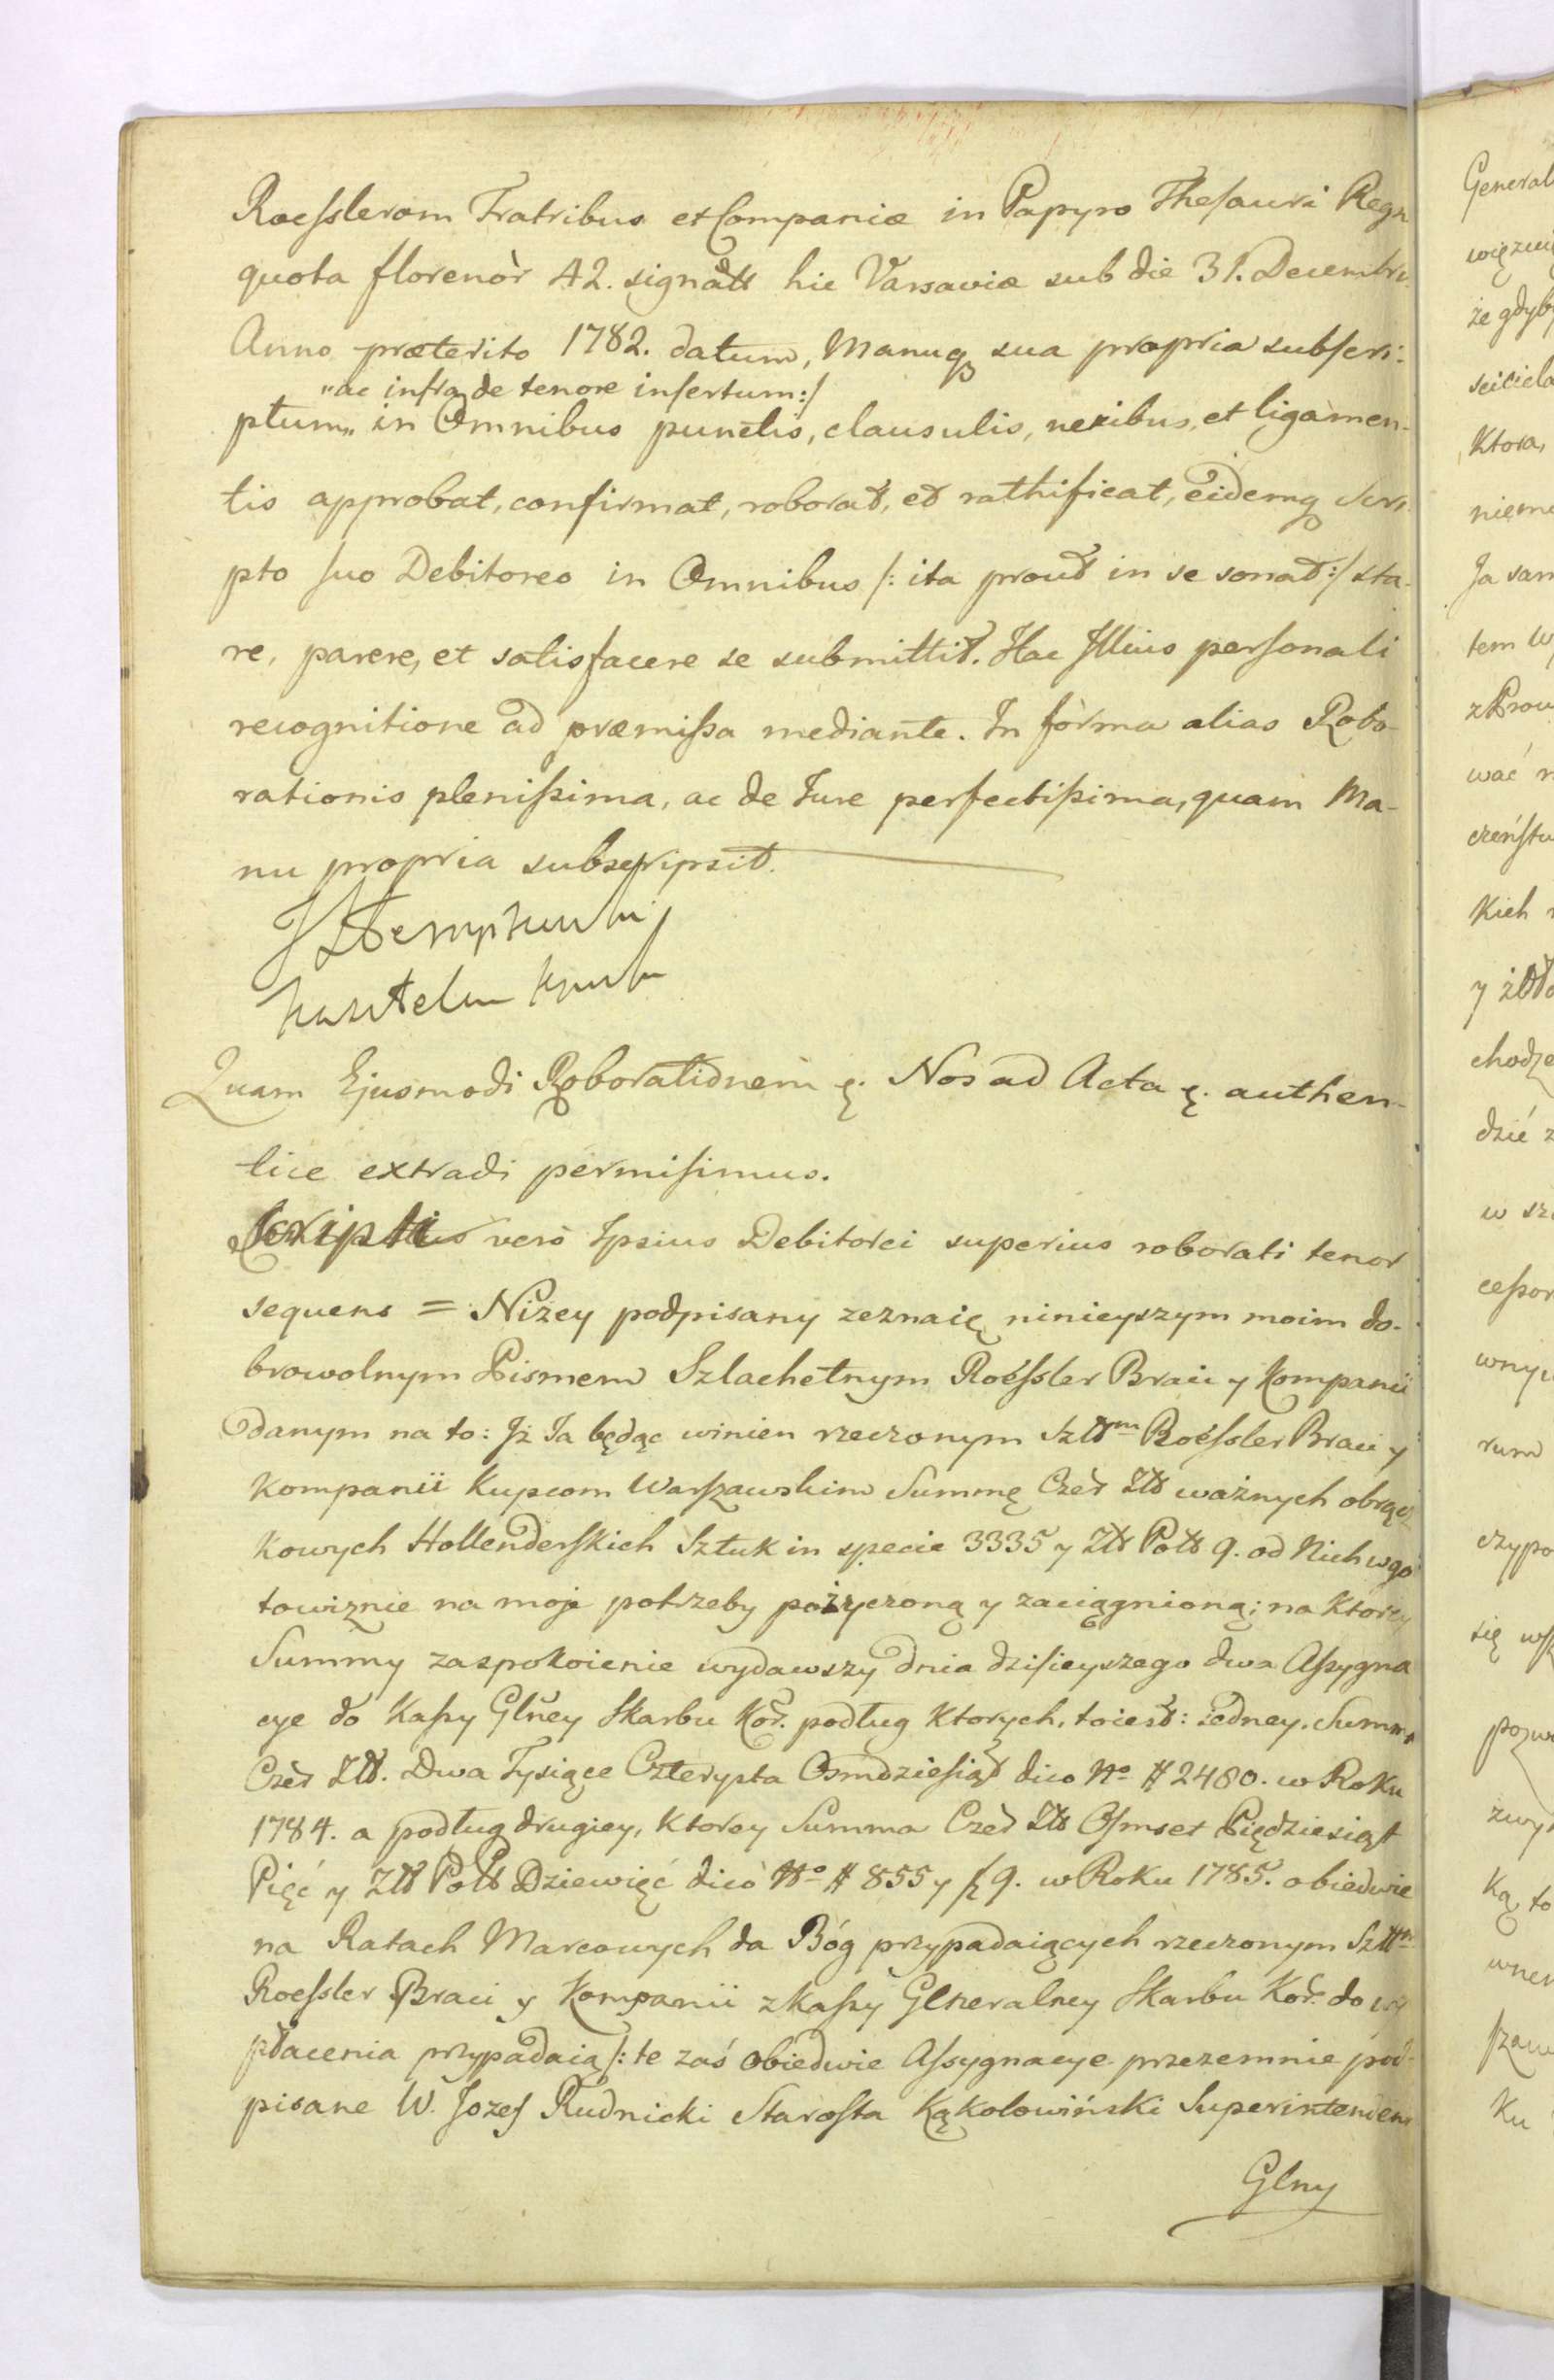 Roeſslerom Fratribus et Companiæ in Papyro Theſauri Regn
quota florenòr 42. signatt hic Varsaviæ sub die 31. Decembris
Anno præterito 1782. datum, Manuq sua propria subſcri:
"ac infra de tenore inſertum:/
ptum„ in Omnibus punctis, clausulis, nexibus, et ligamen-
tis approbat, confirmat, roborat, et rathificat, eidemq Scri
pto ſuo Debitoreo in Omnibus /: ita prout in se sonat:/ sta-
re, parere, et satisfacere se submittit. Hac Illius perſonali
recognitione ad præmiſsa mediante. In fòrma alias Robo-
rationis pleniſsima, ac de Jure perfectiſsima, quam Ma-
nu propria subscripsit.
Quam Ejusmodi Roborationem ę. Nos ad Acta ę. authen-
tice extradi permiſimus.
Scripti verò Ipsius Debitorei superius roborati tenor
sequens = Niżey podpisany zeznaię ninieyszym moim do-
browolnym Pismem Szlachetnym Roéſsler Braci y Kompanii
danym na to: Iż Ja będąc winien rzeczonym Szltt^m Roéſsler Braci y
Kompanii Kupcom Warſzawskim Summę Czèr Zltt ważnych obrącz
kowych Hollenderſkich Sztuk in specie 3335 y Zltt Poltt 9. od Nich w go
towiznie na moje potrzeby pożyczoną y zaciągnioną; na Ktorey
Summy zaspokoienie wydawszy dnia dziſieyszego dwa Aſsygna
cye do Kaſsy Glney Skarbu Kor. podług Ktorych, toiest: iedney. Summa
Czèr Zltt. Dwa Tysiące Czteryſta Osmdzieſiąt dico No # 2480. w Roku
1784. a podług drugiey, Ktorey Summa Czèr Zltt Oſmset Pięćdziesiąt
Pięć y Zltt Poltt Dziewięć dicò No # 855 y f 9. w Roku 1785. obiedwie
na Ratach Marcowych da Bóg przypadaiących rzeczonym Szltt^m
Roeſsler Braci y Kompanii z Kaſsy Glneralney Skarbu Kor. do wy
płacenia przypadaią /: te zaś obiedwie Aſsygnacye przezemnie pod-
pisane W. Jozef Rudnicki Staroſta Kąkolowiński Superintendent
Glny
General
że gdyby
Ktora,
Ja sam
tem W
wać
Kich
dzić z
rum
Ką to
Ku